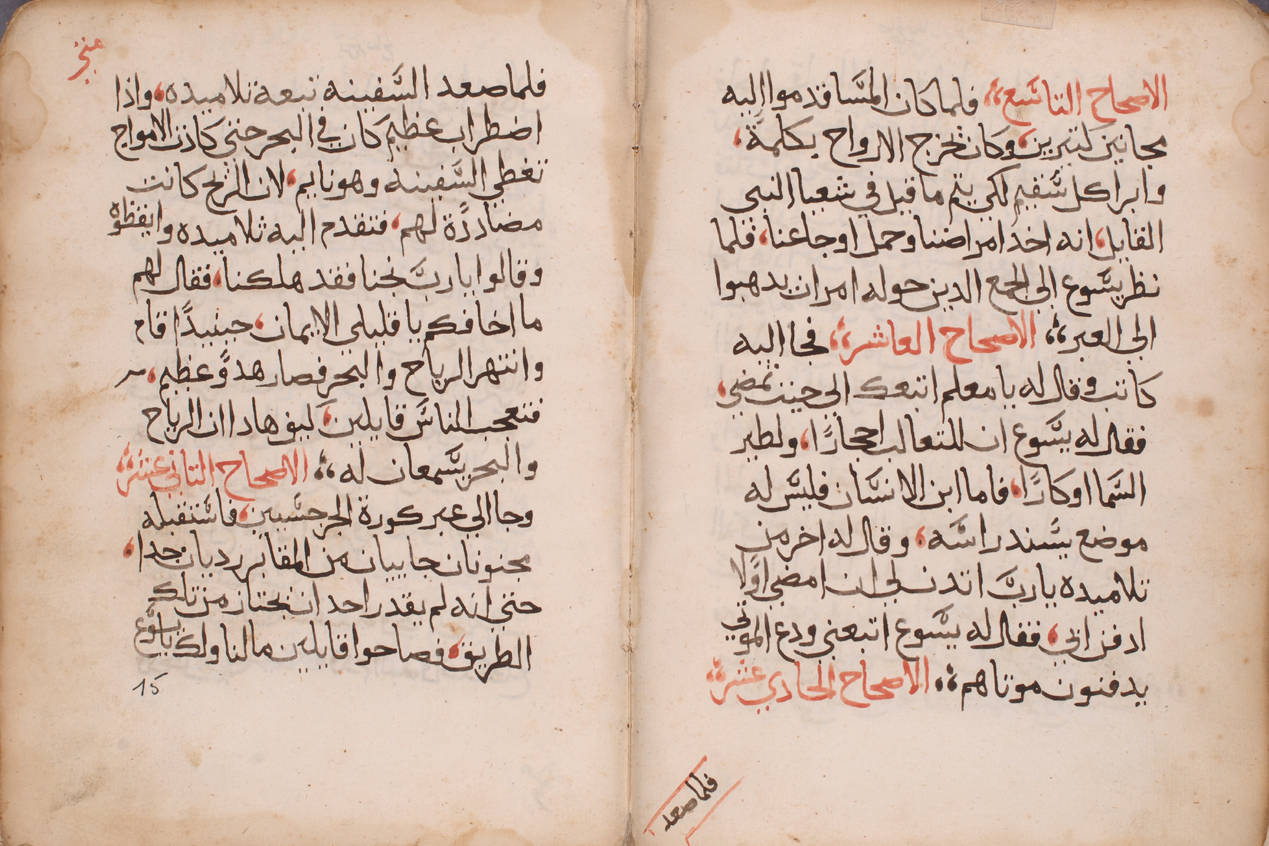 الاصحاح التاسع؛ فلما كان المسا قدموا اليه
مجانين كتيرين، وكان تخرج الارواح بكلمة،
وابرا كل سقيم لكي يتم ما قيل في شعيا النبي
القايل، انه اخد امراضنا وحمل اوجاعنا، فلما
نظر يسوع الى الجمع الدين حوله امر ان يدهبوا
الى العبر؛ الاصحاح العاشر؛ فجا اليه
كاتب وقال له يا معلم اتبعك الى حيت تمضي،
فقال له يسوع ان للتعالب احجارًا، ولطير
السما اوكارًا، فاما ابن الانسان فليس له
موضع يسند راسه، وقال له اخر من
تلاميده يا رب ائدن لي ان امضي اولًا
ادفن ابي، فقال له يسوع اتبعني ودع الموتي
يدفنون موتاهم؛ الاصحاح الحادي عشر؛
فلما صعد
فلما صعد السفينه تبعه تلاميده، واذا
اضطراب عظيم كان في البحر حتى كادت الامواج
تغطي السفينه وهو نايم، لان الريح كانت
مضاددة لهم، فتقدم اليه تلاميده وايقظوه
وقالوا يا رب نجنا فقد هلكنا، فقال لهم
ما اخافكم يا قليلي الايمان، حينيدًا قام
وانتهر الرياح والبحر فصار هدو عظيم،
فتعجب الناس قايلين، كيف هادا ان الرياح
والبحر يسمعان له؛ الاصحاح التاني عشر؛
وجا الي عبر كورة الجرجسيين، فاستقبله
مجنونان جاييان من المقابر رديان جدا،
حتي انه لم يقدر احد ان يجتاز من تلك
الطريق، فصاحوا قايلين ما لنا ولك يا يسوع
15